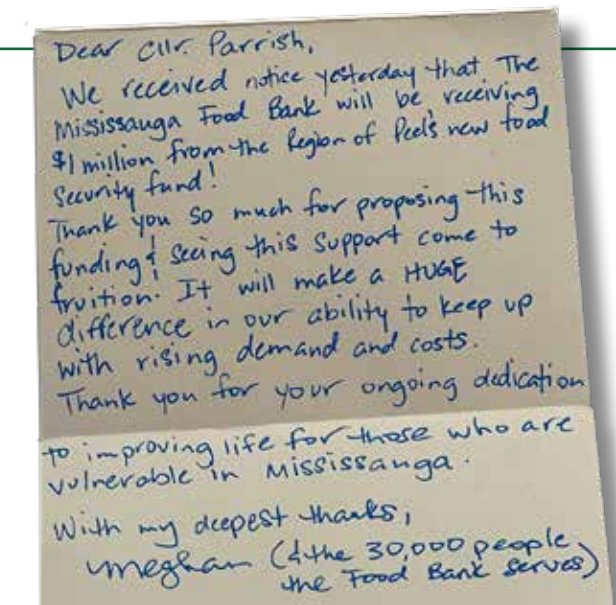 Dear Cllr. Parrish,
We received notice yesterday that The
Mississauga Food Bank will be receiving
$1 million from the Region of Peel's new food
security fund!
Thank you so much for proposing this
funding & seeing this support come to
fruition. It will make a HUGE
difference in our ability to keep up
with rising demand and costs.
Thank you for your ongoing dedication
to improving life for those who are
vulnerable in Mississauga.
With my deepest thanks,
Meghan (& the 30,000 people
the Food Bank serves)